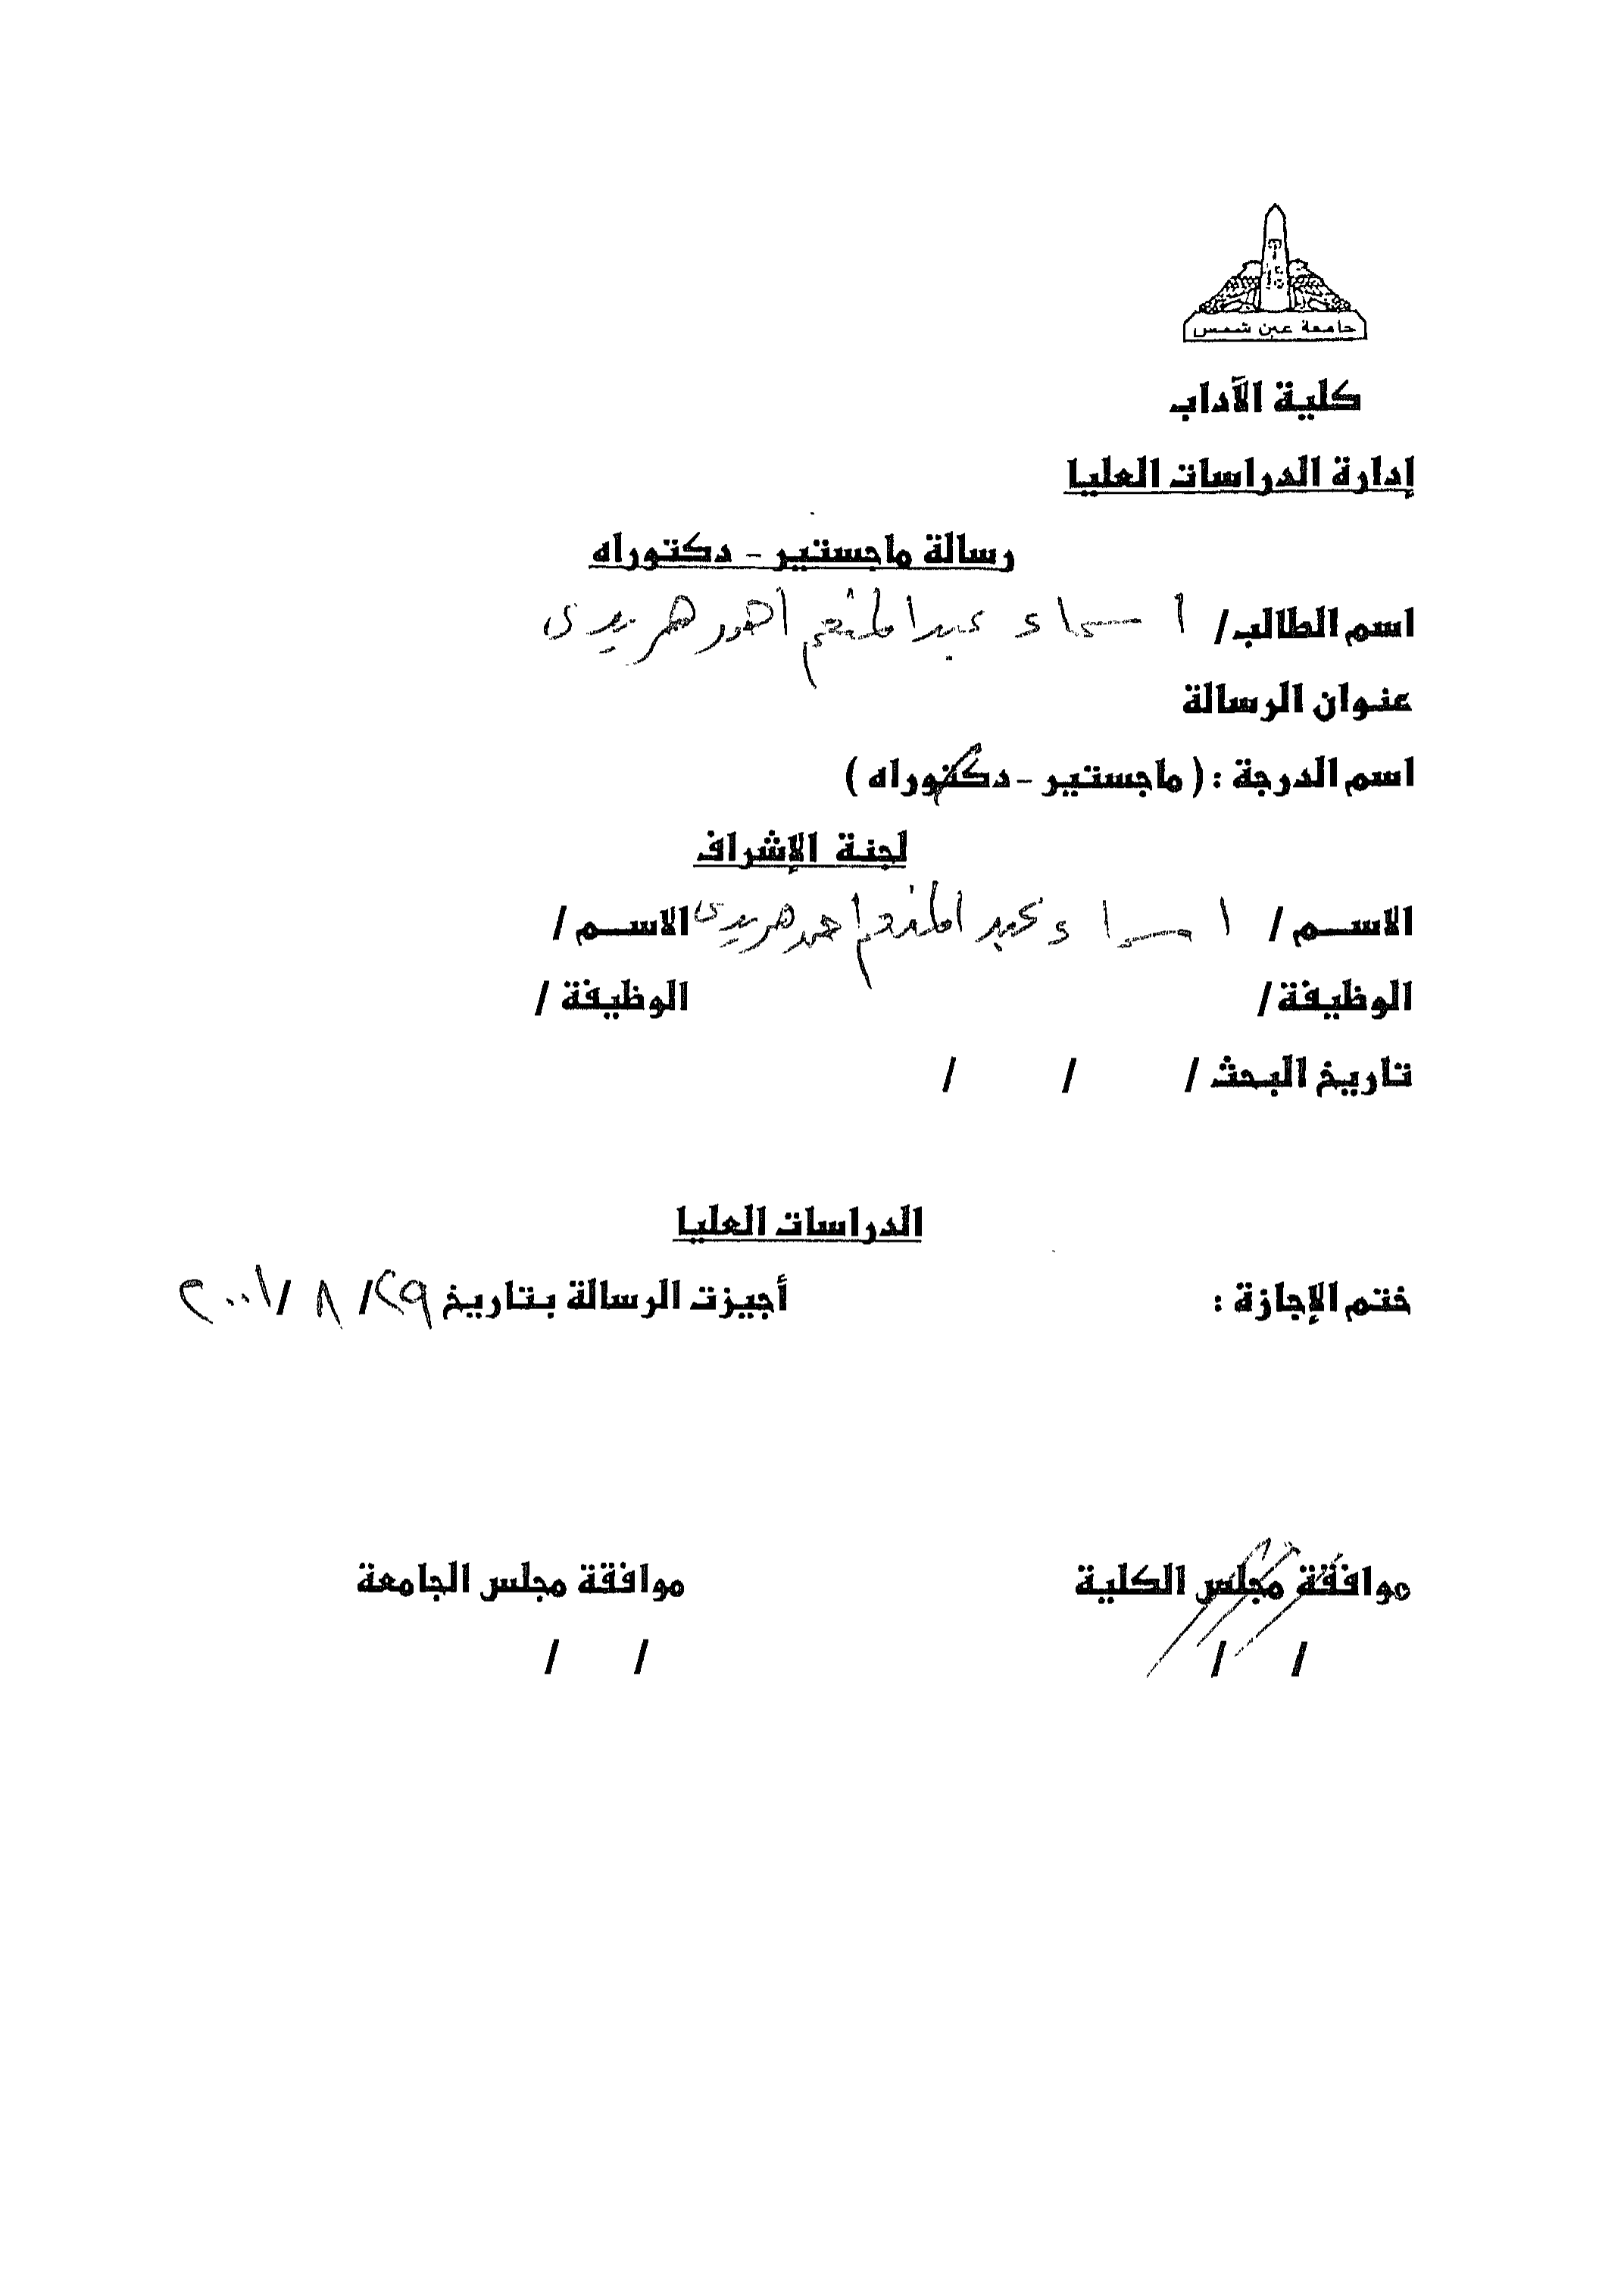 جامعة عين شمس
كلية الآداب
إدارة الدراسات العليا
رسالة ماجستير - دكتوراه
اسم الطالب/ اسماء عبد المنعم أحمد هريدى
عنوان الرسالة
اسم الدرجة : ( ماجستير - دكتوراه )
لجنة الإشراف
الاســم / اسماء عبد المنعم احمد هريدى الاســم /
الوظيفة/ الوظيفة /
تاريخ البحث / / /
الدراسات العليا
ختم الإجازة : أجيزت الرسالة بتاريخ ٢٩/ ٨ /٢٠٠١
موافقة مجلس الكلية موافقة مجلس الجامعة
/ / / /